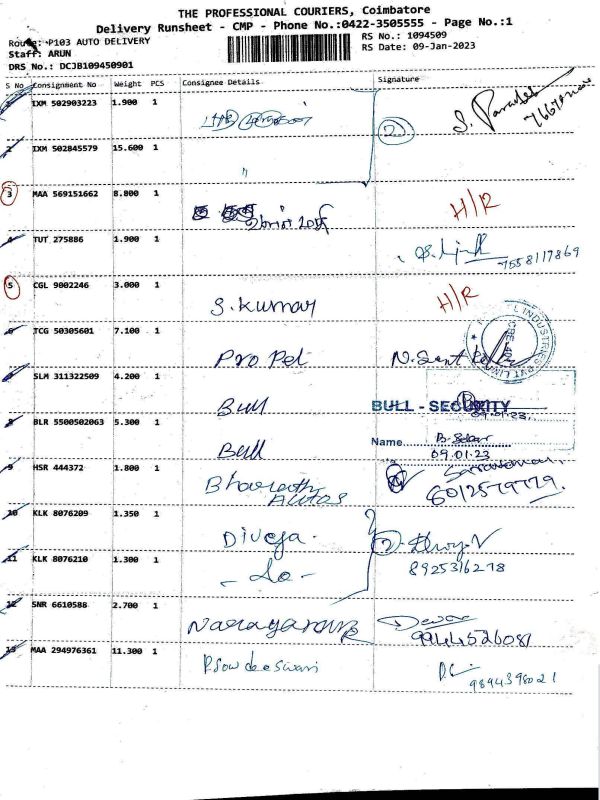 THE PROFESSIONAL COURIERS, Coimbatore
Delivery Runsheet - CMP - Phone No.:0422-3505555 - Page No.:1
Route: P103 AUTO DELIVERY
RS No.: 1094509
Staff: ARUN
RS Date: 09-Jan-2023
DRS No.: DCJB109450901
S No Consignment No Weight PCS Consignee Details Signature
1 IXM 502903223 1.900 1
2
2 IXM 502845579 15.600 1 "
3 MAA 569151662 8.800 1 H/R
4 TUT 275886 1.900 1
7558117869
5 CGL 9002246 3.000 1 S.Kumar H/R
6 TCG 50305601 7.100 1 Propel
7 SLM 311322509 4.200 1 Bull
BULL - SECURITY
09.01.23
8 BLR 5500502063 5.300 1 Bull
Name
09.01.23
9 HSR 444372 1.800 1 Bharath Autos
6012579779
10 KLK 8076209 1.350 1 Diveja
2
11 KLK 8076210 1.300 1 - do -
8925316278
12 SNR 6610588 2.700 1
9944526081
13 MAA 294976361 11.300 1
9894398021